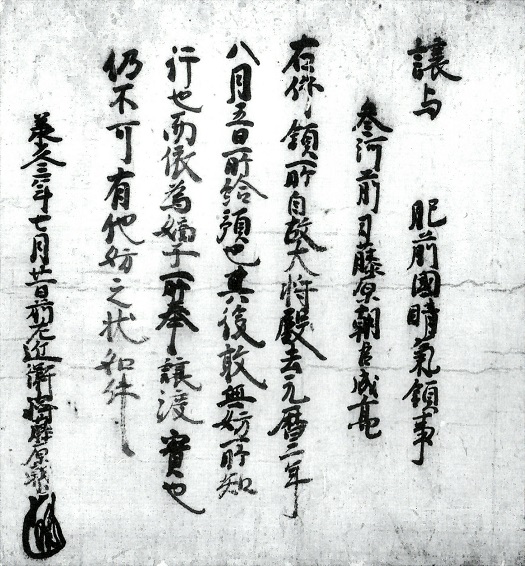 譲与　肥前國晴氣領事
参河前司藤原朝臣成
右件領所自故大将殿去元暦二年
八月五日所給預也其後敢無妨所知
行也而依為嫡子所奉譲渡實也
仍不可有他妨之状如件
承久三年七月廿一日前左近衛将監藤原